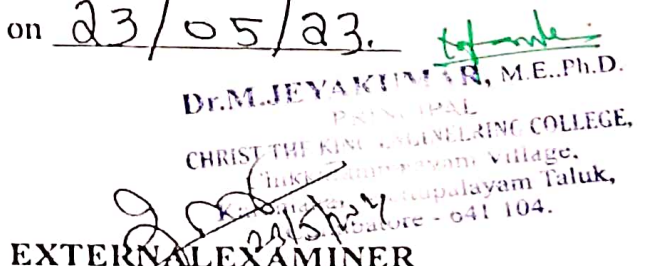 on 23/05/23.
Dr.M.JEYAKUMAR, M.E.,Ph.D.
PRINCIPAL
CHRIST THE KING ENGINEERING COLLEGE,
Village,
palayam Taluk,
- 641 104.
EXTERNALEXAMINER